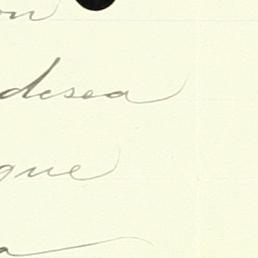 on
desea
que
a